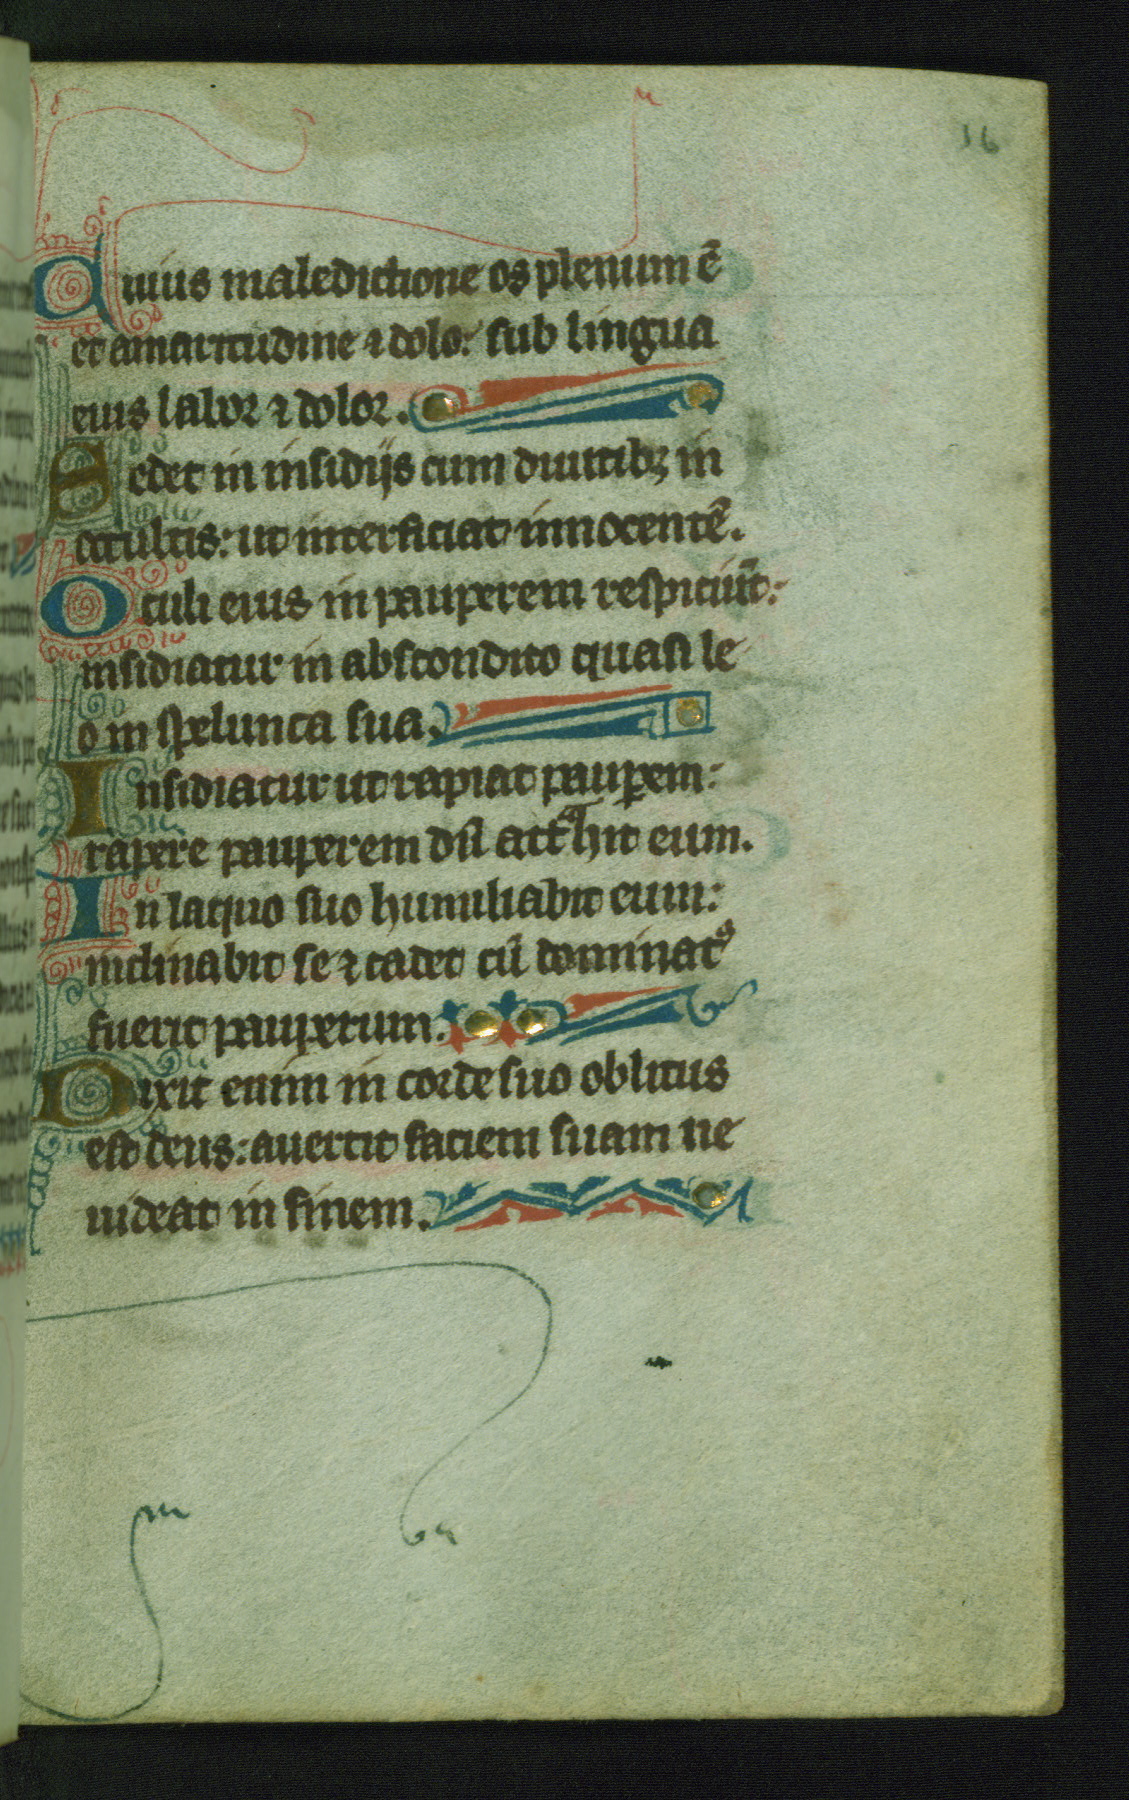 16
Cuius maledictione os plenum ē
et amaritudine ⁊ dolo: sub lingua
eius labor ⁊ dolor.
Sedet in insidijs cum diuitibꝫ in
occultis: ut interficiat innocentē.
Oculi eius in pauperem respiciūt:
insidiatur in abscondito quasi le
o in spelunca sua.
Insidiatur ut rapiat pauꝑem:
rapere pauperem dū attᵃhit eum.
In laqueo suo humiliabit eum:
inclinabit se ⁊ cadet cū dominatꝰ
fuerit pauperum.
Dixit enim in corde suo oblitus
est deus: auertit faciem suam ne
uideat in finem.